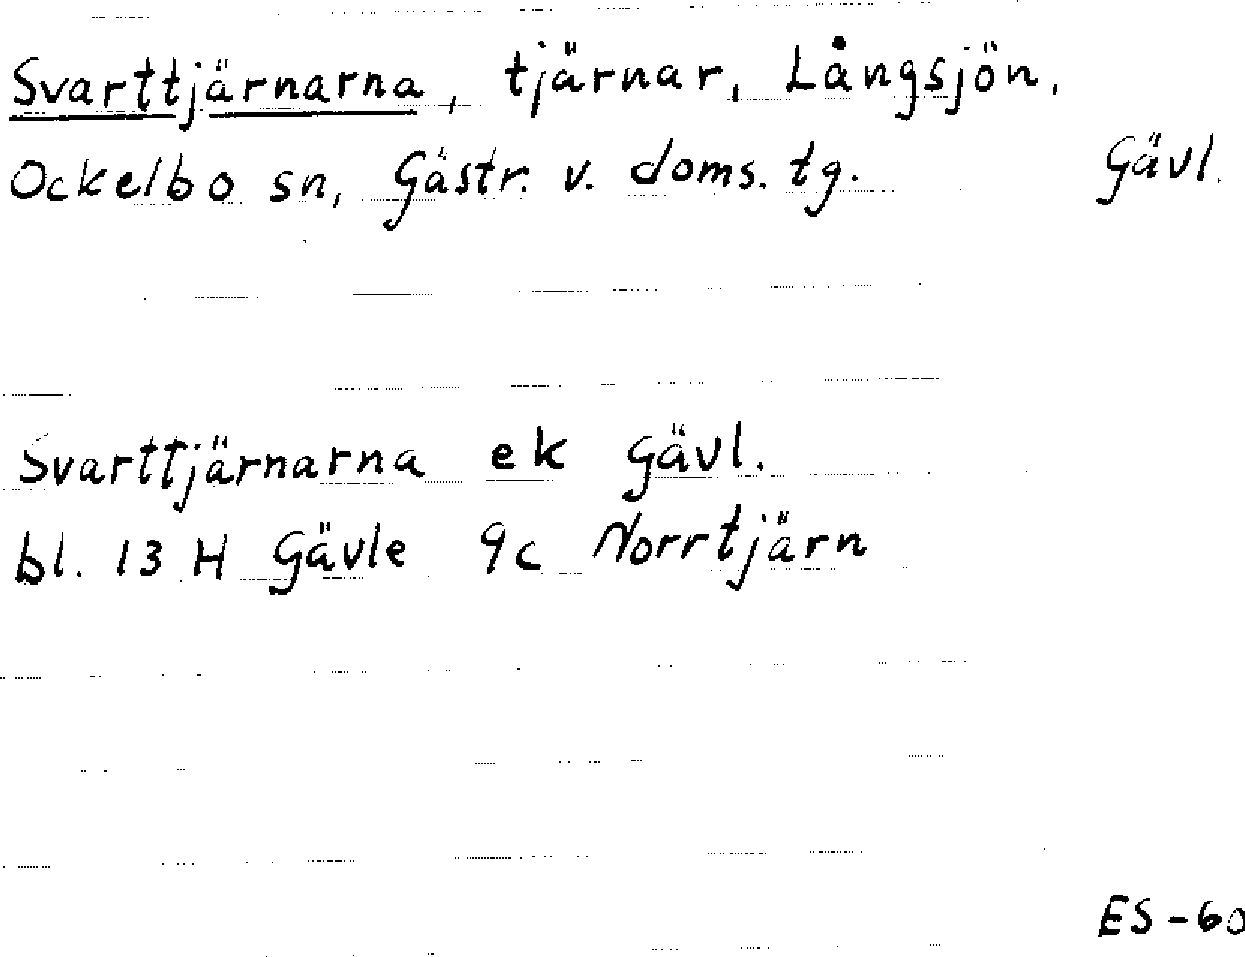 Svarttjärnarna, tjärnar, Långsjön,
Ockelbo sn, Gästr. v. doms. tg. Gävl.
Svarttjärnarna ek Gävl.
bl. 13 H Gävle 9c Norrtjärn
ES-60